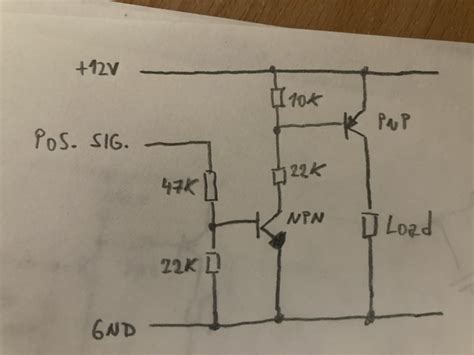 +12V
10K
PNP
POS. SIG.
47K
22K
NPN
Load
22K
GND